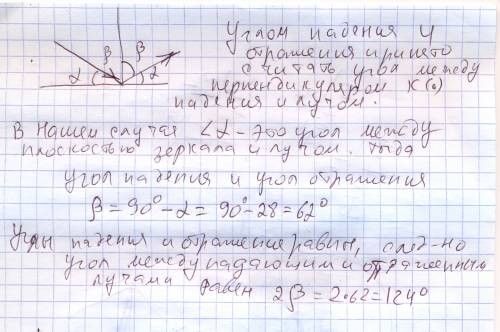 Углом падения и
отражения принято
считать угол между
перпендикуляром к (·)
падения и лучом.
β β
α α
В нашем случае ∠α - это угол между
плоскостью зеркала и лучом. Тогда
угол падения и угол отражения
β = 90° - α = 90° - 28 = 62°
Углы падения и отражения равны, след-но
угол между падающим и отраженным
лучами равен 2β = 2·62 = 124°